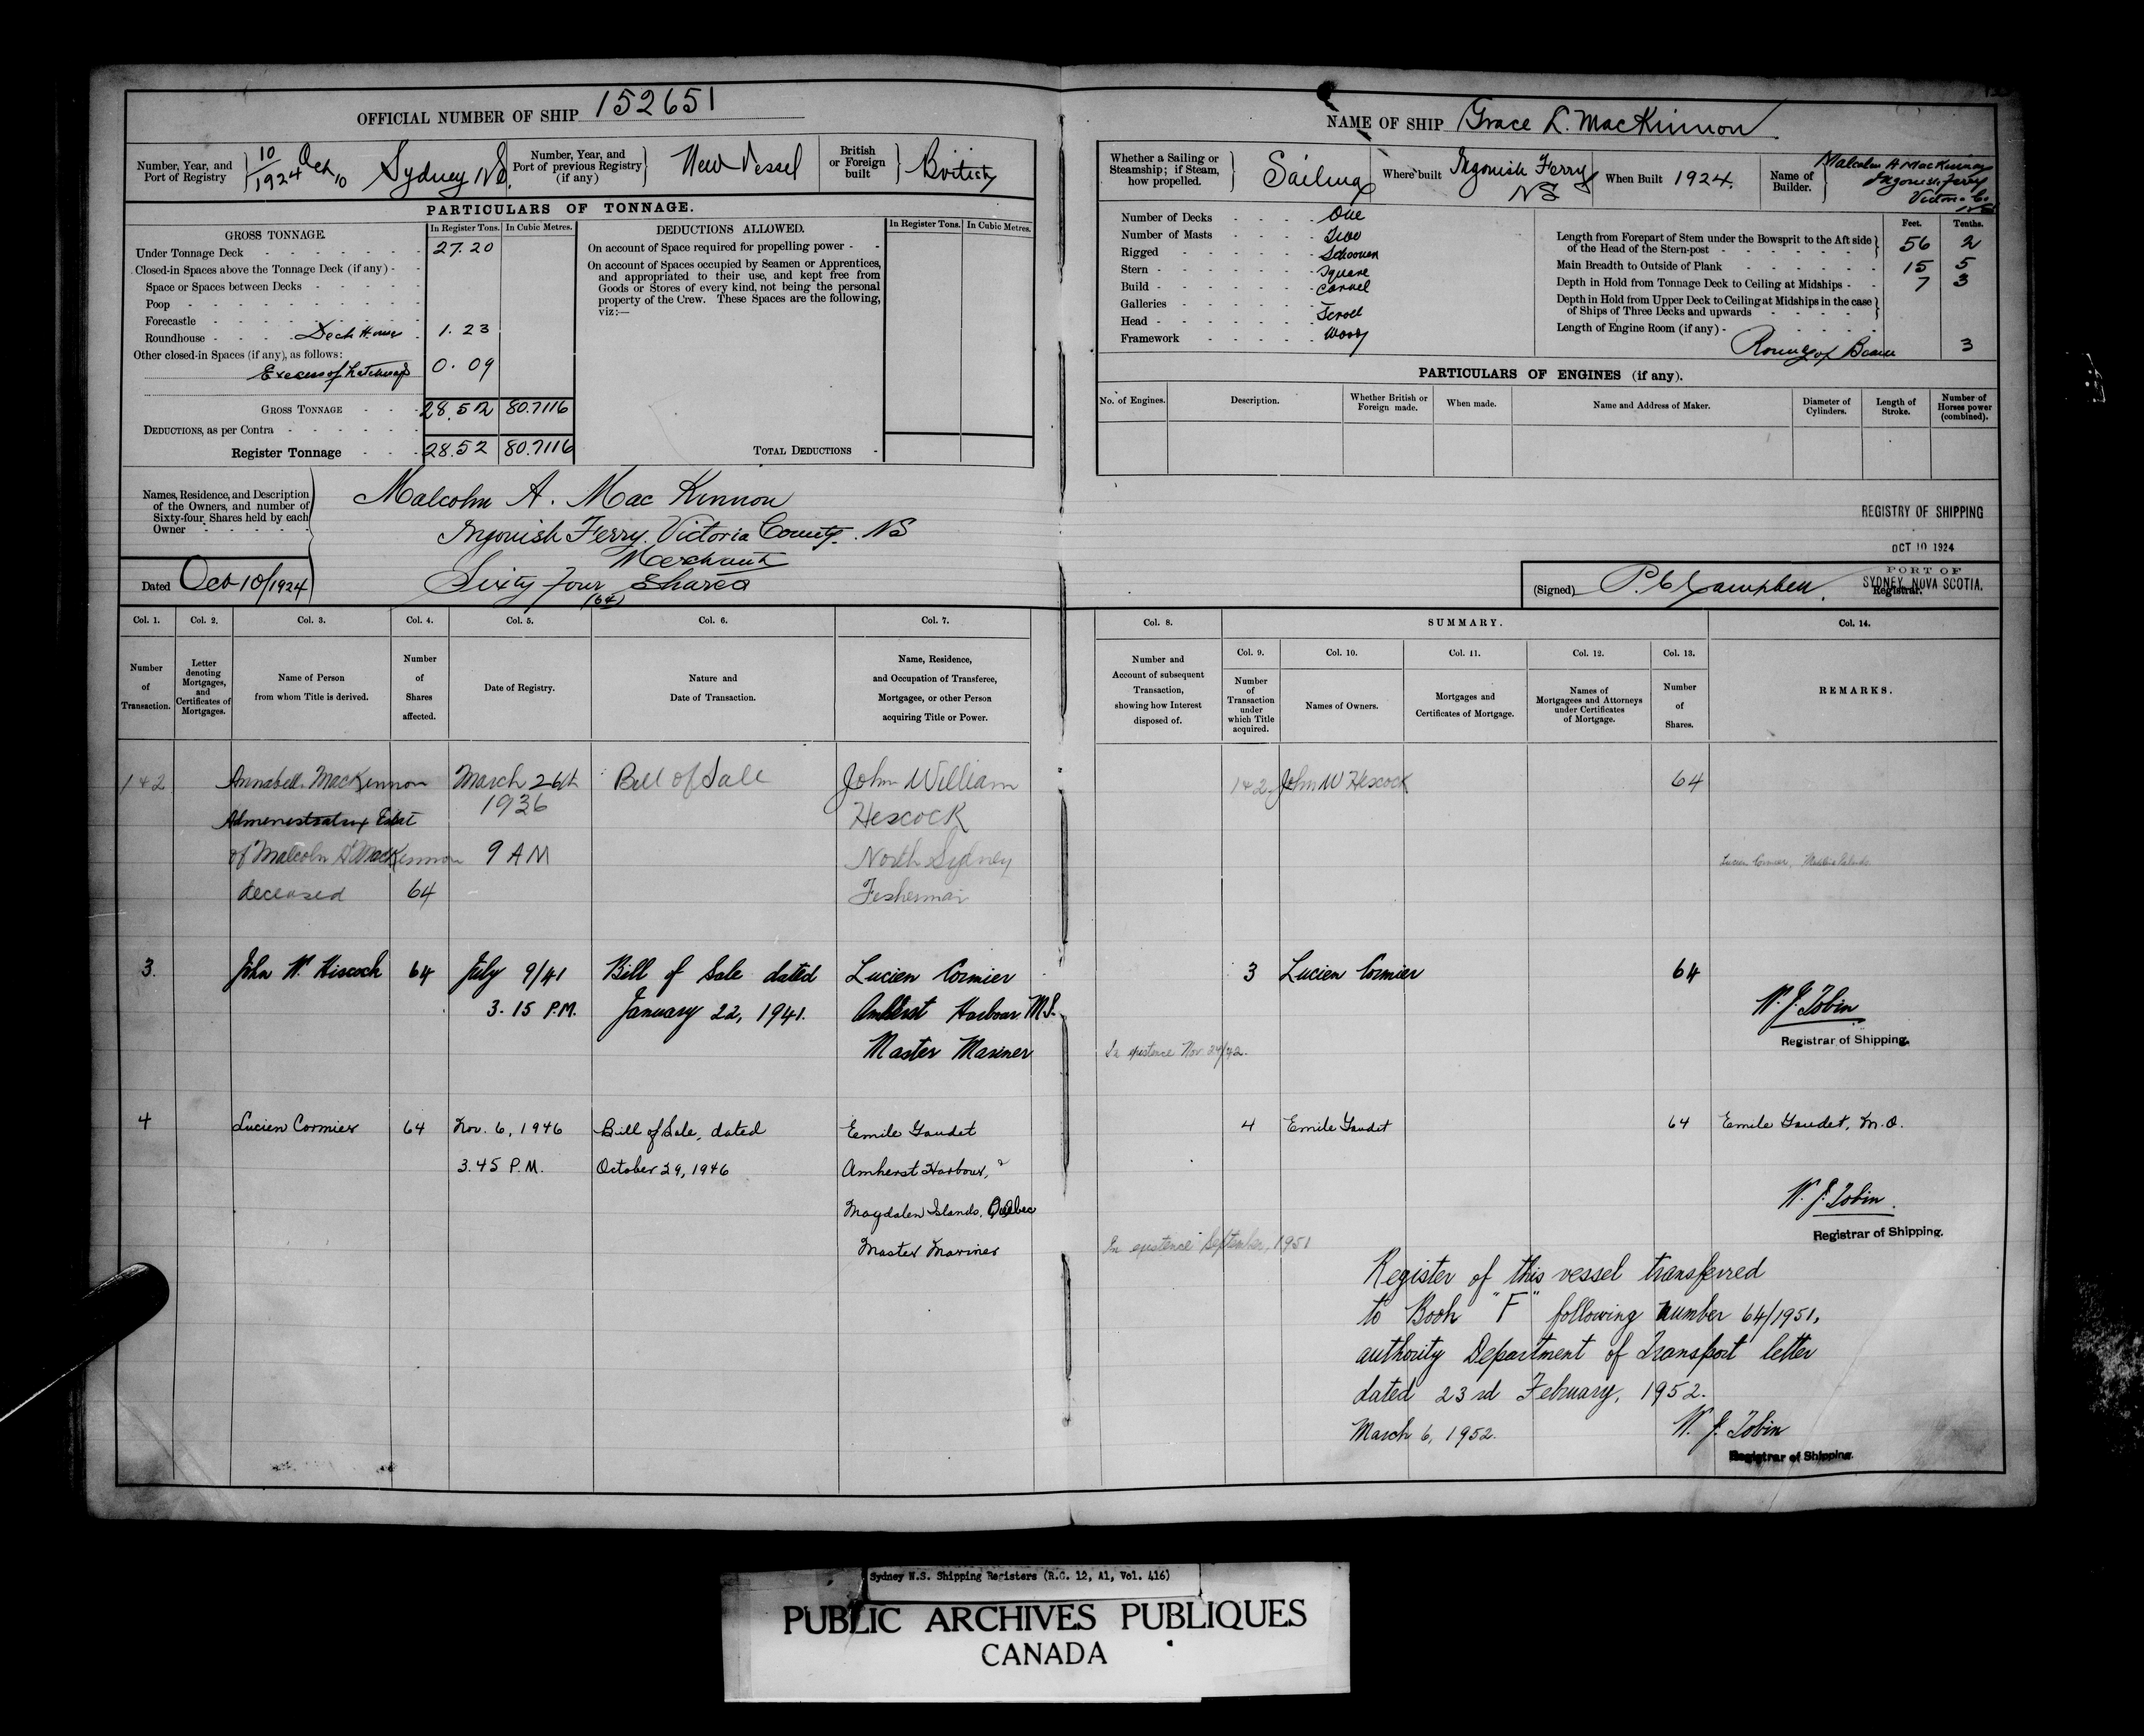 OFFICIAL NUMBER OF SHIP 152651
Number, Year, and Port of Registry 10/1924 Oct 10 Sydney NS.
Number, Year, and Port of previous Registry (if any) New Vessel
British or Foreign built British
PARTICULARS OF TONNAGE.
GROSS TONNAGE.
In Register Tons. In Cubic Metres.
Under Tonnage Deck 27.20
Closed-in Spaces above the Tonnage Deck (if any)
Space or Spaces between Decks
Poop
Forecastle
Roundhouse Deck House 1.23
Other closed-in Spaces (if any), as follows:
Excess of hatchways 0.09
GROSS TONNAGE 28.52 80.7116
DEDUCTIONS, as per Contra
Register Tonnage 28.52 80.7116
DEDUCTIONS ALLOWED.
In Register Tons. In Cubic Metres.
On account of Space required for propelling power
On account of Spaces occupied by Seamen or Apprentices,
and appropriated to their use, and kept free from
Goods or Stores of every kind, not being the personal
property of the Crew. These Spaces are the following,
viz:—
TOTAL DEDUCTIONS
Names, Residence, and Description
of the Owners, and number of
Sixty-four Shares held by each
Owner
Malcolm A. Mac Kinnon
Ingonish Ferry. Victoria County. NS
Merchant
Sixty Four Shares
(64)
Dated Oct 10/1924
NAME OF SHIP Grace L. MacKinnon
Whether a Sailing or Steamship; if Steam, how propelled. Sailing
Where built Ingonish Ferry NS
When Built 1924.
Name of Builder. Malcolm A MacKinnon
Ingonish Ferry
Victoria Co.
NS
Number of Decks One
Number of Masts Two
Rigged Schooner
Stern Square
Build Carvel
Galleries
Head Scroll
Framework Wood
Feet. Tenths.
Length from Forepart of Stem under the Bowsprit to the Aft side of the Head of the Stern-post 56 2
Main Breadth to Outside of Plank 15 5
Depth in Hold from Tonnage Deck to Ceiling at Midships 7 3
Depth in Hold from Upper Deck to Ceiling at Midships in the case of Ships of Three Decks and upwards
Length of Engine Room (if any)
Round of Beam 3
PARTICULARS OF ENGINES (if any).
No. of Engines. Description. Whether British or Foreign made. When made. Name and Address of Maker. Diameter of Cylinders. Length of Stroke. Number of Horses power (combined).
REGISTRY OF SHIPPING
OCT 10 1924
PORT OF
SYDNEY, NOVA SCOTIA.
(Signed) P. C. Campbell. Registrar.
Col. 1. Col. 2. Col. 3. Col. 4. Col. 5. Col. 6. Col. 7.
Number of Transaction.
Letter denoting Mortgages, and Certificates of Mortgages.
Name of Person from whom Title is derived.
Number of Shares affected.
Date of Registry.
Nature and Date of Transaction.
Name, Residence, and Occupation of Transferee, Mortgagee, or other Person acquiring Title or Power.
Col. 8. SUMMARY. Col. 14.
Col. 9. Col. 10. Col. 11. Col. 12. Col. 13.
Number and Account of subsequent Transaction, showing how Interest disposed of.
Number of Transaction under which Title acquired.
Names of Owners.
Mortgages and Certificates of Mortgage.
Names of Mortgagees and Attorneys under Certificates of Mortgage.
Number of Shares.
REMARKS.
1&2 Annabell MacKinnon March 26th Bill of Sale John William 1&2 John W Hescock 64
Administratrix Estat 1936 Hescock
of Malcolm A MacKinnon 9 AM North Sydney Lucien Cormier,
deceased 64 Fisherman
3. John W. Hiscock 64 July 9/41 Bill of Sale dated Lucien Cormier 3 Lucien Cormier 64
3.15 P.M. January 22, 1941. Amherst Harbour M.I. W. J. Tobin
Master Mariner In existence Nov. 24/42. Registrar of Shipping.
4 Lucien Cormier 64 Nov. 6, 1946 Bill of Sale, dated Eemile Gaudet 4 Emile Gaudet 64 Emile Gaudet, M.O.
3.45 P.M. October 29, 1946 Amherst Harbour,
Magdalen Islands, Quebec W. J. Tobin.
Master Mariner In existence September, 1951 Registrar of Shipping.
Register of this vessel transferred
to Book "F" following number 64/1951,
authority Department of Transport letter
dated 23rd February, 1952.
March 6, 1952. W. J. Tobin
Registrar of Shipping.
Sydney N.S. Shipping Registers (R.G. 12, A1, Vol. 416)
PUBLIC ARCHIVES PUBLIQUES
CANADA